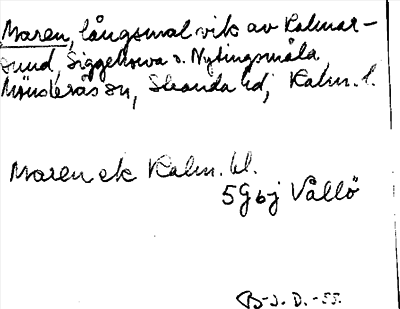 Maren, långsmal vik av Kalmar-
sund, Siggehorva o. Nytingsmåla
Mönsterås sn, Stranda hd, Kalm. l.
Maren ek Kalm. bl.
5G6j Vållö
B-J. D. -55.